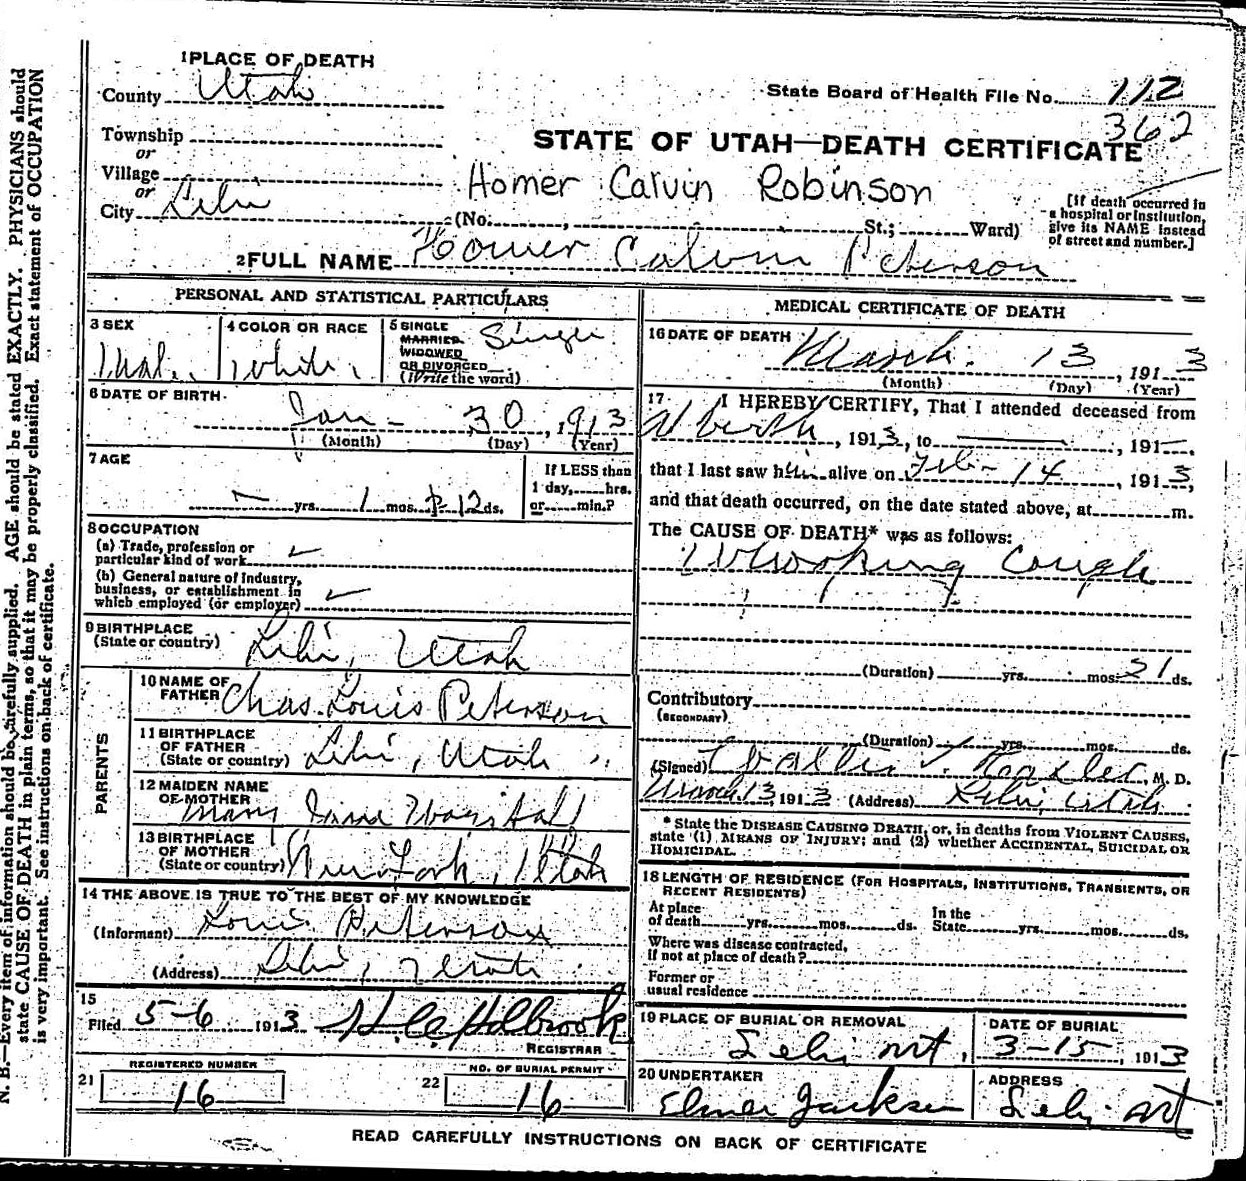 1 PLACE OF DEATH
County Utah
State Board of Health File No. 112
362
Township
or
Village
or
City Lehi
STATE OF UTAH—DEATH CERTIFICATE
Homer Calvin Robinson
(No. , St.; Ward)
[If death occurred in
a hospital or institution,
give its NAME instead
of street and number.]
2 FULL NAME Homer Calvin Peterson
PERSONAL AND STATISTICAL PARTICULARS
3 SEX
Male
4 COLOR OR RACE
White
5 SINGLE
MARRIED,
WIDOWED
OR DIVORCED
(Write the word)
Single
6 DATE OF BIRTH
Jan 30, 1913
(Month) (Day) (Year)
7 AGE
If LESS than
1 day, hrs.
or min.?
yrs. 1 mos. 12 ds.
8 OCCUPATION
(a) Trade, profession or
particular kind of work
(b) General nature of Industry,
business, or establishment in
which employed (or employer)
9 BIRTHPLACE
(State or country)
Lehi, Utah
PARENTS
10 NAME OF
FATHER
Chas. Louis Peterson
11 BIRTHPLACE
OF FATHER
(State or country)
Lehi, Utah
12 MAIDEN NAME
OF MOTHER
Mary Jane
13 BIRTHPLACE
OF MOTHER
(State or country)
Utah
14 THE ABOVE IS TRUE TO THE BEST OF MY KNOWLEDGE
(Informant) Louis Peterson
(Address) Lehi, Utah
15
Filed 5-6 1913 H. C. Holbrook
REGISTRAR
REGISTERED NUMBER
21 16
NO. OF BURIAL PERMIT
22 16
MEDICAL CERTIFICATE OF DEATH
16 DATE OF DEATH
March 13, 1913
(Month) (Day) (Year)
17 I HEREBY CERTIFY, That I attended deceased from
At birth, 1913, to , 191
that I last saw him alive on Feb - 14, 1913,
and that death occurred, on the date stated above, at m.
The CAUSE OF DEATH* was as follows:
Whooping Cough
(Duration) yrs. mos. 21 ds.
Contributory
(SECONDARY)
(Duration) yrs. mos. ds.
(Signed) M. D.
March 13, 1913 (Address) Lehi, Utah
* State the DISEASE CAUSING DEATH, or, in deaths from VIOLENT CAUSES,
state (1) MEANS OF INJURY; and (2) whether ACCIDENTAL, SUICIDAL OR
HOMICIDAL.
18 LENGTH OF RESIDENCE (FOR HOSPITALS, INSTITUTIONS, TRANSIENTS, OR
RECENT RESIDENTS)
At place
of death yrs. mos. ds.
In the
State yrs. mos. ds.
Where was disease contracted,
if not at place of death?
Former or
usual residence
19 PLACE OF BURIAL OR REMOVAL
Lehi Ut,
DATE OF BURIAL
3-15, 1913
20 UNDERTAKER
Elmer Jackson
ADDRESS
Lehi Ut
READ CAREFULLY INSTRUCTIONS ON BACK OF CERTIFICATE
N. B.—Every item of information should be carefully supplied. AGE should be stated EXACTLY. PHYSICIANS should
state CAUSE OF DEATH in plain terms, so that it may be properly classified. Exact statement of OCCUPATION
is very important. See instructions on back of certificate.